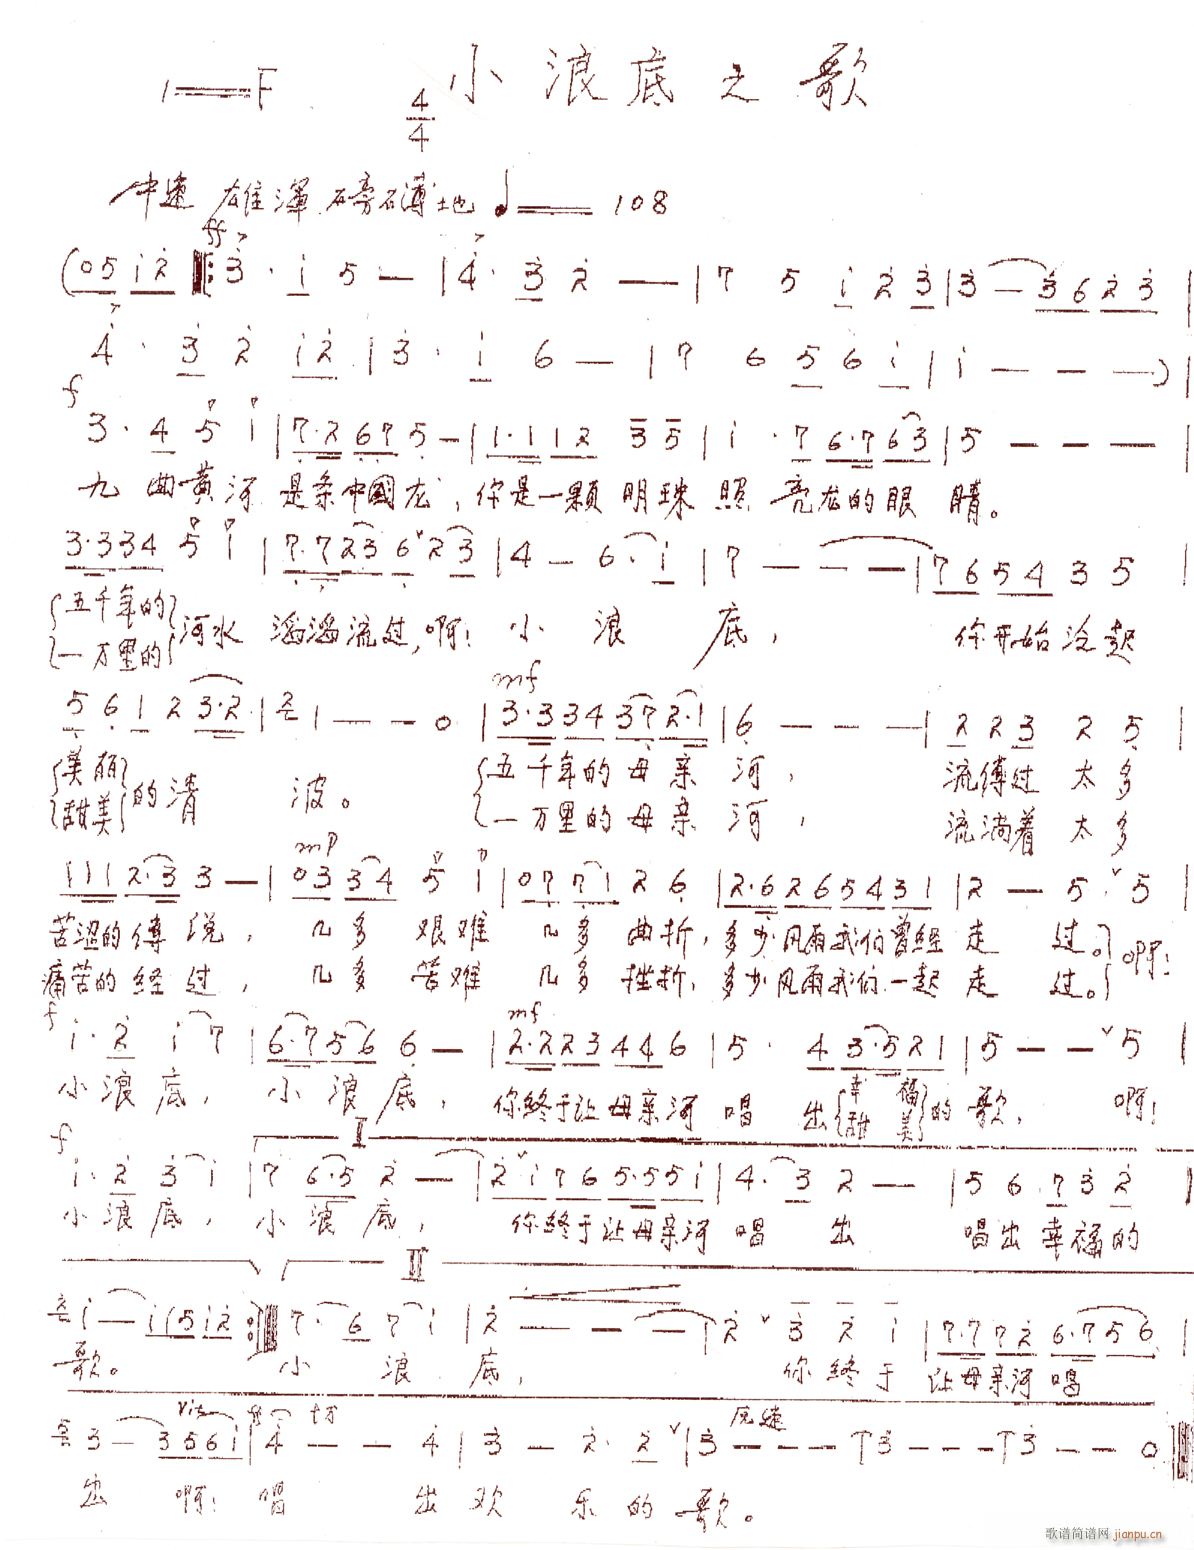 小浪底之歌
1=F 4/4
中速 雄渾 磅礴地 ♩=108
ff
(05 i2 ‖: 3· i 5 — | 4· 3 2 — | 7 5 i 2 3 | 3 — 3 6 2 3 |
4· 3 2 i2 | 3· i 6 — | 7 6 5 6 i | i — — —) |
f
3· 4 5 i | 7·2 67 5 — | 1·1 12 3 5 | i· 7 6·7 63 | 5 — — —
九曲黄河是条中國龙,你是一颗明珠照亮龙的眼睛。
3·3 34 5 i | 7·7 23 6 ∨ 23 | 4 — 6· i | 7 — — — | 76 54 3 5 |
{五千年的} 河水滔滔流过,啊!小浪底, 你开始泛起
{一万里的}
mf
5 6 1 2 3·2 | 2 1 — — 0 | 3·3 34 37 2·1 | 6 — — — | 2 2 3 2 5 |
{美丽} 的清波。 {五千年的母亲河, 流傳过太多
{甜美} {一万里的母亲河, 流淌着太多
mp
111 2·3 3 — | 03 34 5 i | 07 71 2 6 | 2·6 26 54 31 | 2 — 5 ∨ 5 |
苦涩的傳说, 几多艰难几多曲折,多少风雨我们曾经走过。} 啊!
痛苦的经过, 几多苦难几多挫折,多少风雨我们一起走过。}
f mf
i· 2 i 7 | 6·7 56 6 — | 2·2 23 44 6 | 5· 4 3·5 21 | 5 — — ∨ 5 |
小浪底,小浪底,你终于让母亲河唱出{幸福}的歌, 啊!
{甜美}
f I
i· 2 3 i | 7 6·5 2 — | 2 ∨ i 76 5·5 5i | 4· 3 2 — | 5 6 7 3 2 |
小浪底,小浪底, 你终于让母亲河唱出 唱出幸福的
II
i — i (5 i2 :‖ 7· 6 7 i | 2 — — — | 2 ∨ 3 2 i | 7·7 72 6·7 56 |
歌。 小浪底, 你终于让母亲河唱
rit ff 原速
3 — 3 5 6 i | 4 — — 4 | 3 — 2· 2 ∨ | 3 — — — | 3 — — — | 3 — — 0 ‖
出 啊!唱 出欢乐的歌。
歌谱简谱网 jianpu.cn